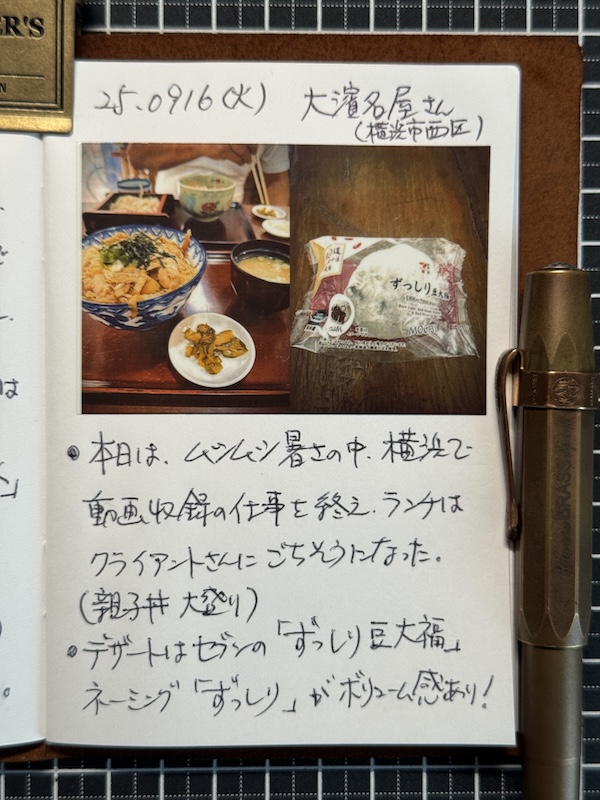 ER'S
25.0916(火) 大濱名屋さん
(横浜市西区)
ずっしり豆大福
MOCHI
・本日は、ムシムシ暑さの中、横浜で
動画収録の仕事を終え、ランチは
クライアントさんにごちそうになった。
(親子丼 大盛り)
・デザートはセブンの「ずっしり豆大福」
ネーミング「ずっしり」がボリューム感あり!
BRASS
は